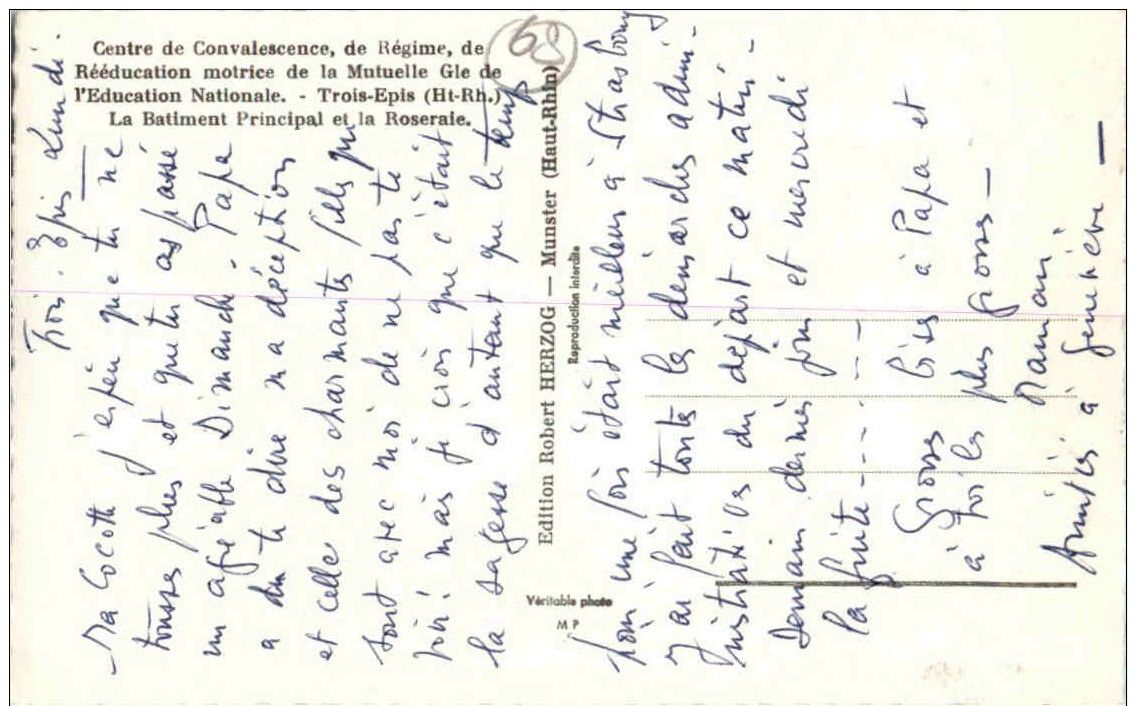 Centre de Convalescence, de Régime, de
Rééducation motrice de la Mutuelle Gle de
l'Education Nationale. - Trois-Epis (Ht-Rh.)
La Batiment Principal et la Roseraie.
68
Trois. Epis Lundi.
Ma Cocotte j'espère que tu ne
tousses plus et que tu as passé
un agréable Dimanche. Papa
a du te dire ma déception
et celle des charmantes filles qui
sont avec moi de ne pas te
voir! mais je crois que c'était
la sagesse d'autant que le temps
Edition Robert HERZOG — Munster (Haut-Rhin)
Reproduction interdite
Véritable photo
M P
pour une fois était meilleur à Strasbourg
J'ai fait toutes les démarches admi-
nistratives du départ ce matin -
Demain dernier jour et mercredi
la fuite - - - - - - -
Grosses bises à Papa et
à toi les plus grosses —
Maman
Amitiés à Geneviève —